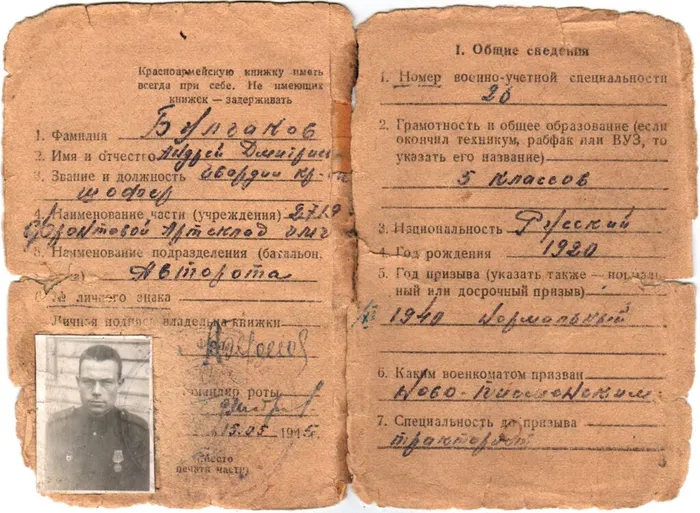 Красноармейскую книжку иметь
всегда при себе. Не имеющих
книжек — задерживать
1. Фамилия Булгаков
2. Имя и отчество Андрей Дмитриев
3. Звание и должность гвардии кр-ец
шофер
4. Наименование части (учреждения) 2719
фронтовой Артсклад
5. Наименование подразделения (батальон.
Авторота
6. № личного знака
Личная подпись владельца книжки
Командир роты
15.05 1945
Место
печати части
I. Общие сведения
1. Номер военно-учетной специальности
26
2. Грамотность и общее образование (если
окончил техникум, рабфак или ВУЗ, то
указать его название)
5 классов
3. Национальность Русский
4. Год рождения 1920
5. Год призыва (указать также — нормаль
ный или досрочный призыв)
1940 Нормальный
6. Каким военкоматом призван
Ново-
7. Специальность до призыва
тракторист